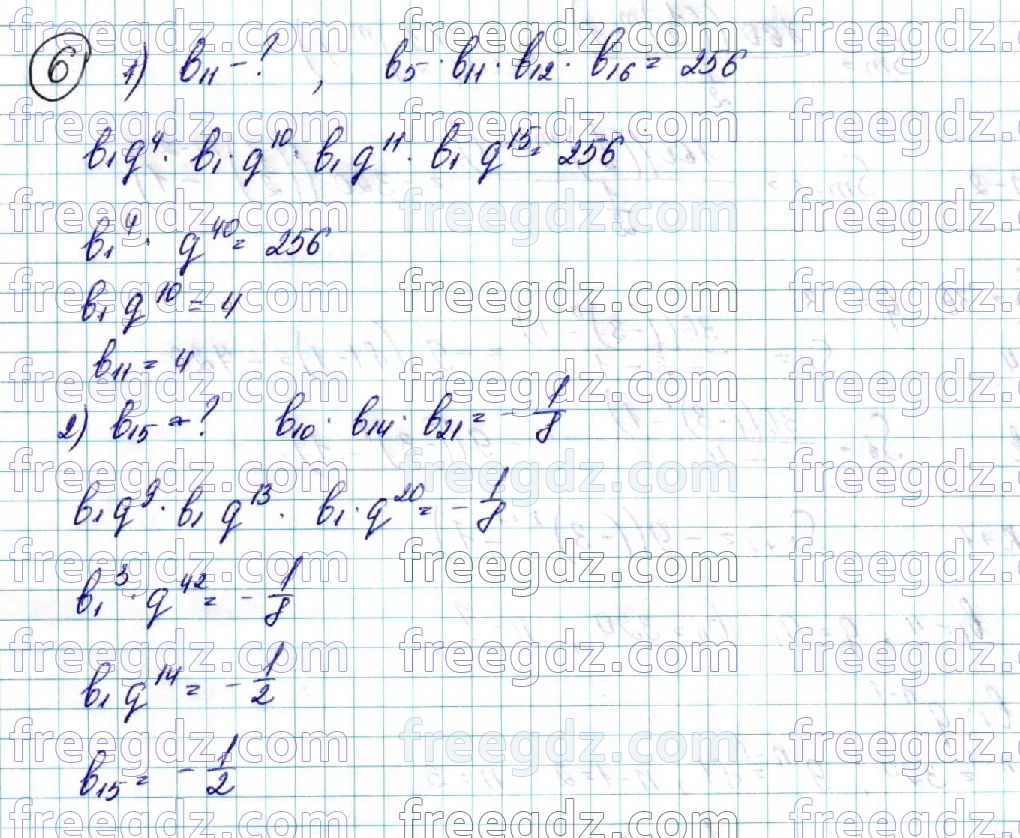 6 1) b₁₁ - ? , b₅ · b₁₁ · b₁₂ · b₁₆ = 256
b₁q⁴ · b₁ · q¹⁰ · b₁q¹¹ · b₁q¹⁵ = 256
b₁⁴ · q⁴⁰ = 256
b₁q¹⁰ = 4
b₁₁ = 4
2) b₁₅ - ? b₁₀ · b₁₄ · b₂₁ = - 1/8
b₁q⁹ · b₁q¹³ · b₁ · q²⁰ = - 1/8
b₁³ · q⁴² = - 1/8
b₁q¹⁴ = - 1/2
b₁₅ = - 1/2
freegdz.com